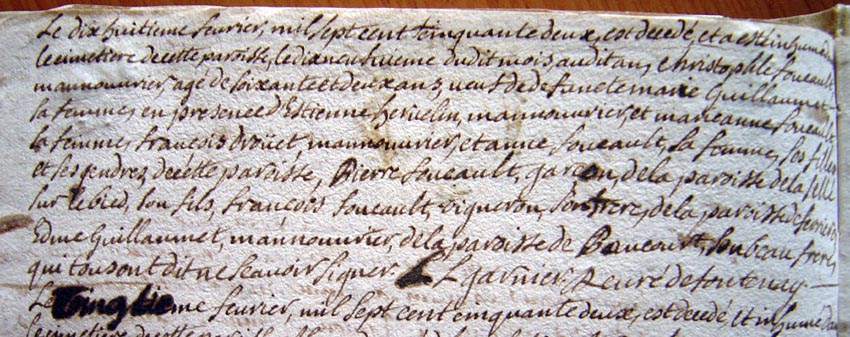 Le dix huitieme fevrier, mil sept cent cinquante deux, est decedé, et a esté inhumé d
le cimetiere de cette paroisse, le dix neuvuieme dudit mois audit an, Christophle foucault
mannouvrier, agé de soixante et deux ans, veuf de defuncte marie Guillaumet
sa femme, en presence d'Estienne hervelin, mannouvrier, et marie anne foucault
sa femme, francois Droüet, mannouvrier, et anne foucault, sa femme, ses filles
et ses gendres, de cette paroisse, Pierre foucault, garcon, de la paroisse de la selle
sur le bied, son fils, francois foucault, vigneron, son frere, de la paroisse de ferriere,
Edme Guillaumet, mannouvrier, de la paroisse de, son beau frere,
qui tous ont dit ne scavoir signer L garnier, curé de fontenay
Le vingtieme fevrier, mil sept cent cinquante deux, est decedé, et inhumé da
le cimetiere de cette